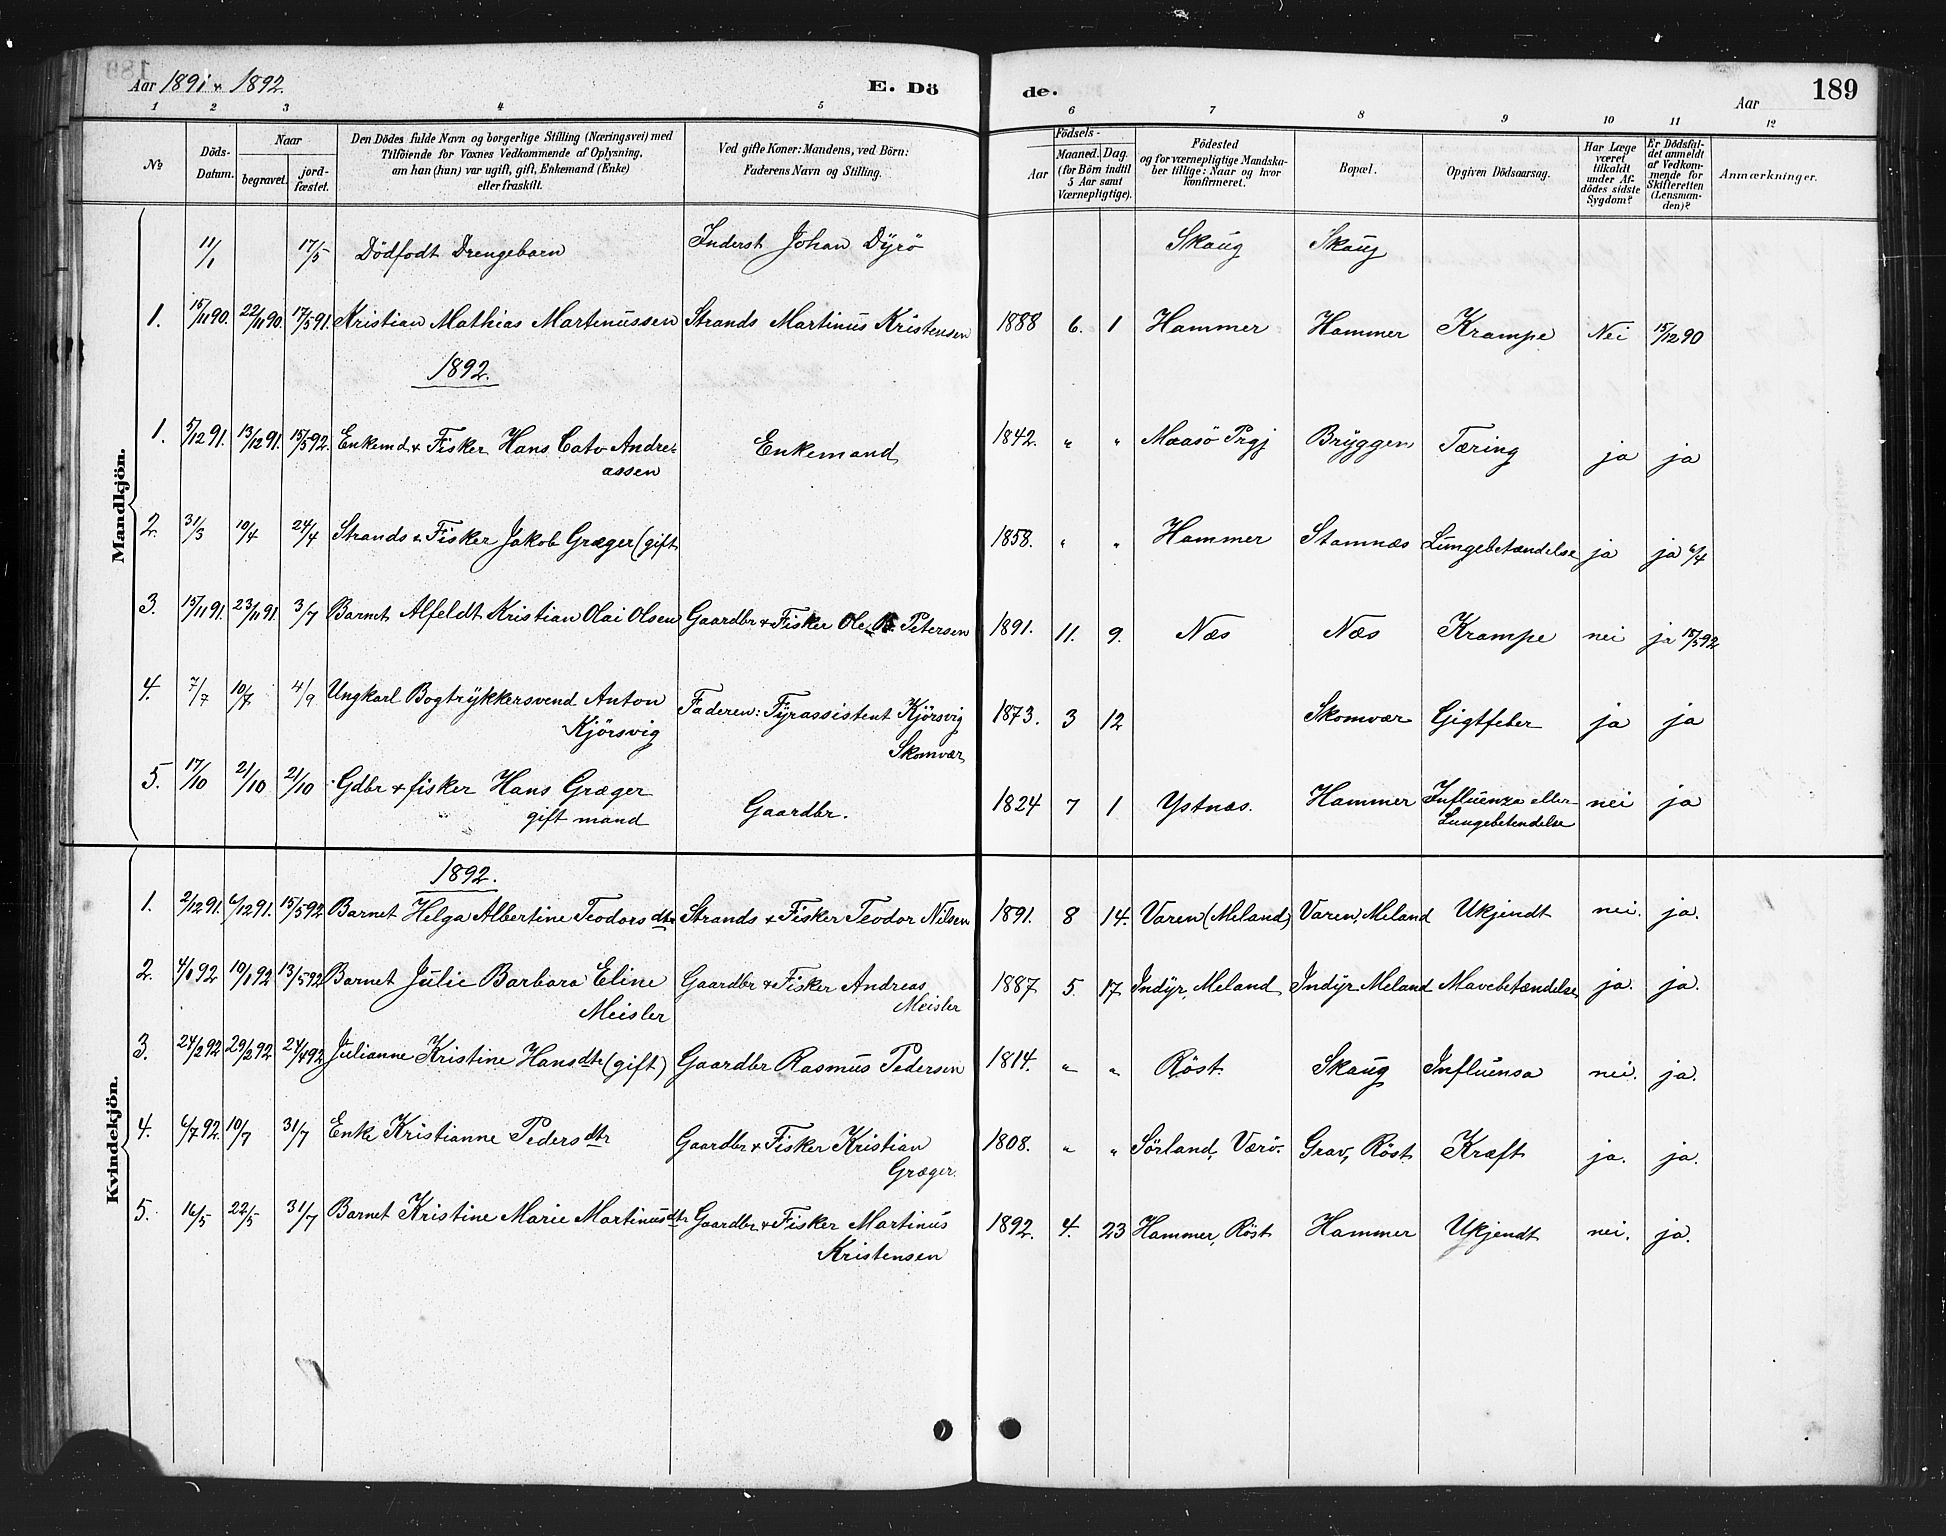 Aar 1891 & 1892.
E. Dö
de.
Aar
189
1 2 3 4 5 6 7 8 9 10 11 12
No
Döds-Datum.
Naar
begravet.
jord-fæstet.
Den Dödes fulde Navn og borgerlige Stilling (Næringsvei) med
Tilföiende for Voxnes Vedkommende af Oplysning,
om han (hun) var ugift, gift, Enkemand (Enke)
eller fraskilt.
Ved gifte Koner: Mandens, ved Börn:
Faderens Navn og Stilling.
Födsels-
Aar
Maaned. Dag.
(for Börn indtil
5 Aar samt
Værnepligtige).
Födested
og for værnepligtige Mandska-
ber tillige: Naar og hvor
konfirmeret.
Bopæl.
Opgiven Dödsaarsag.
Har Læge
været
tilkaldt
under Af-
dödes sidste
Sygdom?
Er Dödsfal-
det anmeldt
af Vedkom-
mende for
Skifteretten
(Lensman-
den)?
Anmærkninger.
Mandkjön.
11/1 17/5 Dödfodt Drengebarn Inderst Johan Dÿrö Skaug Skaug
1. 15/11 90. 22/11 90. 17/5 91. Kristian Mathias Martinussen Strands Martinus Kristensen 1888 6. 1 Hammer Hammer Krampe Nei 15/12 90
1892.
1. 5/12 91. 13/12 91. 15/5 92. Enkemd & Fisker Hans Cato Andre- Enkemand 1842. " " Maasö Prgj Brÿggen Tæring ja ja
assen
2. 31/3 10/4 24/4 Strands & Fisker Jakob Græger (gift 1858. " " Hammer Stamnæs Lungebetændelse ja ja 6/4
3. 15/11 91. 23/11 91. 3/7 Barnet Alfeldt Kristian Olai Olsen Gaardbr & Fisker Ole B. Petersen 1891. 11. 9. Næs Næs Krampe nei ja 15/5 92
4. 7/7 10/7 4/9 Ungkarl Bogtrÿkkersvend Anton Faderen: Fÿrassistent Kjörsvig 1873. 3 12 Skomvær Gigtfeber ja ja
Kjörsvig Skomvær
5. 17/10 21/10 21/10 Gdbr & fisker Hans Græger Gaardbr. 1824 7 1 Ystnæs. Hammer Influenza eller nei ja
gift mand Lungebetendelse
Kvindekjön.
1892.
1. 2/12 91. 6/12 91. 15/5 92 Barnet Helga Albertine Teodorsdtr Strands & Fisker Teodor Nilsen 1891. 8 14. Varen (Meland) Varen, Meland Ukjendt nei. ja.
2. 4/1 92 19/1 92 13/5 92 Barnet Julie Barbara Eline Gaardbr & Fisker Andreas 1887 5. 17 Indÿr, Meland Indÿr Meland Mavebetændelse ja. ja.
Meisler Meisler
3. 24/2 92 29/2 92 24/4 92 Julianne Kristine Hansdtr (gift) Gaardbr Rasmus Pedersen 1814. " " Röst. Skaug Influensa nei. ja.
4. 6/7 92. 10/7 31/7 Enke Kristianne Pedersdtr Gaardbr & Fisker Kristian 1808. " " Sörland, Værö. Grav, Röst. Kræft ja. ja.
Græger.
5. 16/5 22/5 31/7 Barnet Kristine Marie Martinusdtr Gaardbr & Fisker Martinus 1892. 4. 23 Hammer, Röst Hammer Ukjendt nei. ja.
Kristensen